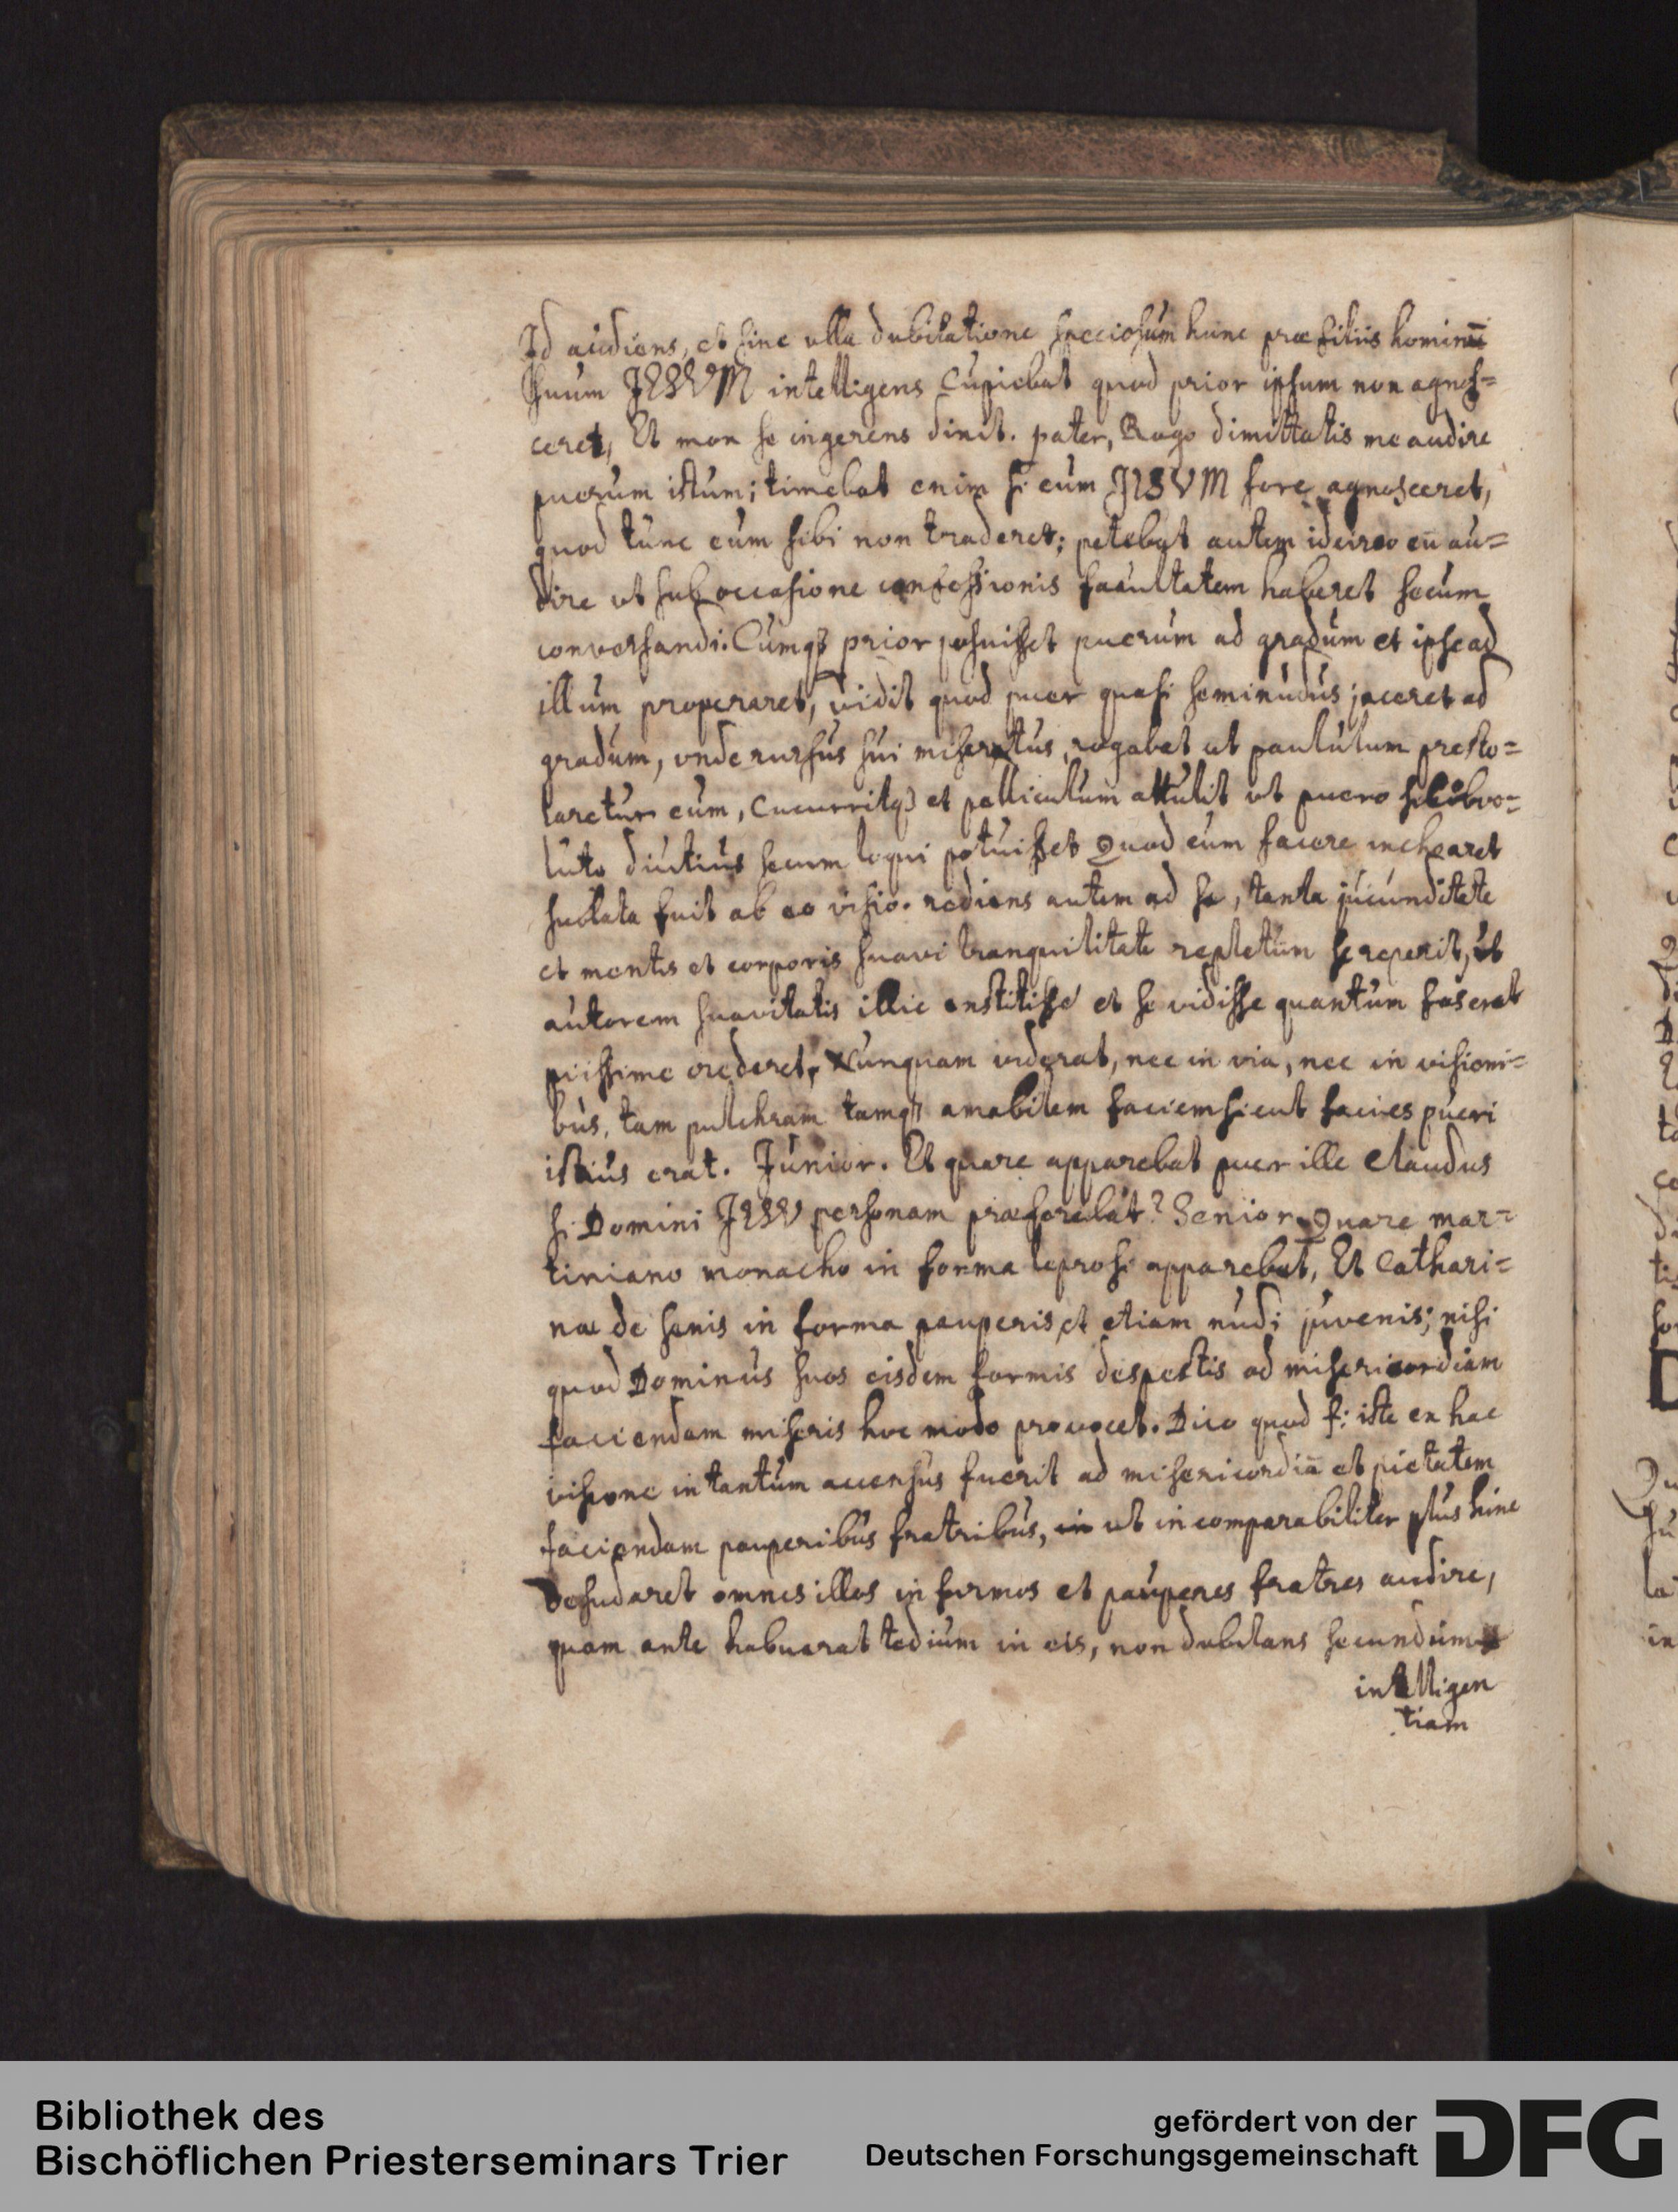 Id audiens, et sine ulla dubitatione speciosum hunc præ filiis hominū
suum JESUM intelligens cupiebat quod prior ipsum non agnos=
ceret, Et mox se ingerens dixit. pater, Rogo dimittatis me audire
puerum istum; timebat enim si eum JESUM fore agnosceret,
quod tunc eum sibi non traderet; petebat autem idcirco eū au=
dire ut sub occasione confessionis facultatem haberet secum
conversandi. Cumq3 prior posuisset puerum ad gradum et ipse ad
illum properaret, vidit quod puer quasi seminudus jaceret ad
gradum, unde rursus sui misertus, rogabat ut paululum presto=
laretur eum, cucurritq3 et palliculum attulit ut puero obvo=
luto diutius secum loqui potuisset Quod cum facere incharet
sublata fuit ab eo visio. rediens autem ad se, tanta jucunditate
et mentis et corporis suavi tranquilitate repletum se reperit, ut
autorem suavitatis illic enstitisse et se vidisse quantum fas erat
piissime crederet, Nunquam viderat, nec in via, nec in visioni=
bus, tam pulchram tamq3 amabilem faciem sicut facies pueri
istius erat. Junior. Et quare apparebat puer ille claudus
si Domini JESU personam præferebat? Senior. Quare mar=
tiniano monacho in forma leprosi apparebat, Et Cathari=
næ de senis in forma pauperis, et etiam nudi juvenis; nisi
quod Dominus suos eisdem formis despectis ad misericordiam
faciendam miseris hoc modo provocet. Dico quod f: iste ex hac
visione in tantum accensus fuerit ad misericordiā et pietatem
faciendam pauperibus fratribus, in ut incomparabiliter plus hinc
desudaret omnes illos infirmos et pauperes fratres audire,
quam ante habuerat tedium in eis, non dubitans secundum
intelligen
tiam
Bibliothek des
Bischöflichen Priesterseminars Trier
gefördert von der
Deutschen Forschungsgemeinschaft
DFG